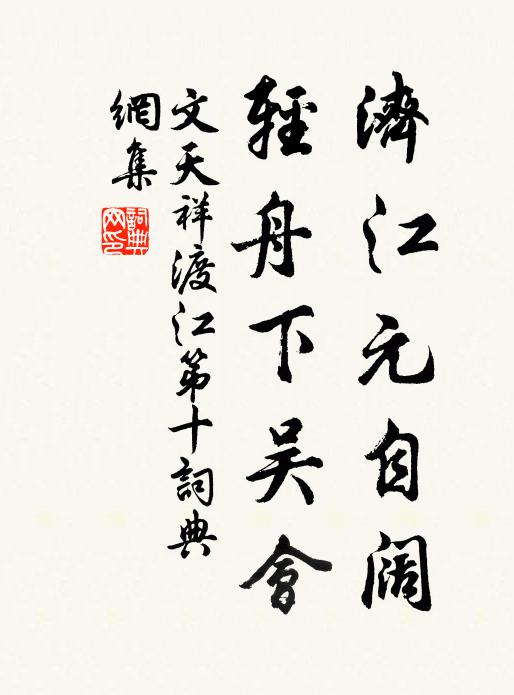 濟江元自阔
輕舟下吴會
文天祥渡江第十詞典
網集
詞典网印